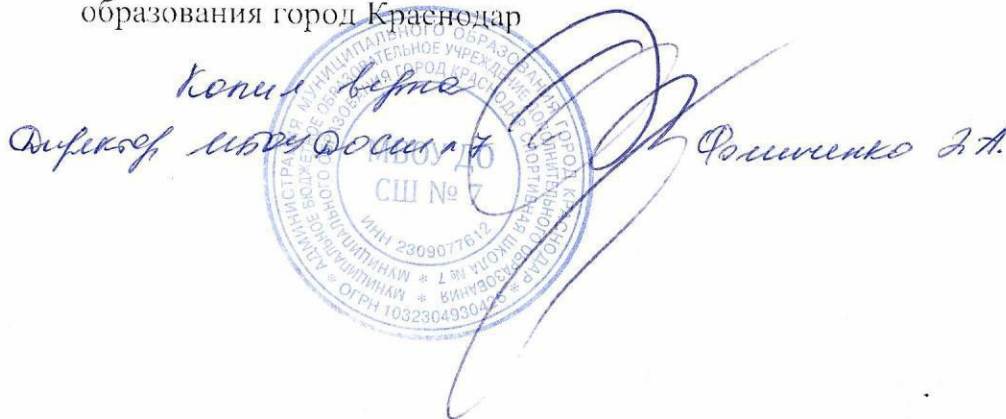 образования город Краснодар
Копия верна
Директор МБОУ ДО СШ №7
АДМИНИСТРАЦИЯ МУНИЦИПАЛЬНОГО ОБРАЗОВАНИЯ ГОРОД КРАСНОДАР * ОГРН 1032304930426 *
МУНИЦИПАЛЬНОЕ БЮДЖЕТНОЕ ОБРАЗОВАТЕЛЬНОЕ УЧРЕЖДЕНИЕ ДОПОЛНИТЕЛЬНОГО ОБРАЗОВАНИЯ *
МУНИЦИПАЛЬНОГО ОБРАЗОВАНИЯ ГОРОД КРАСНОДАР СПОРТИВНАЯ ШКОЛА № 7 *
МБОУ ДО
СШ № 7
ИНН 2309077612